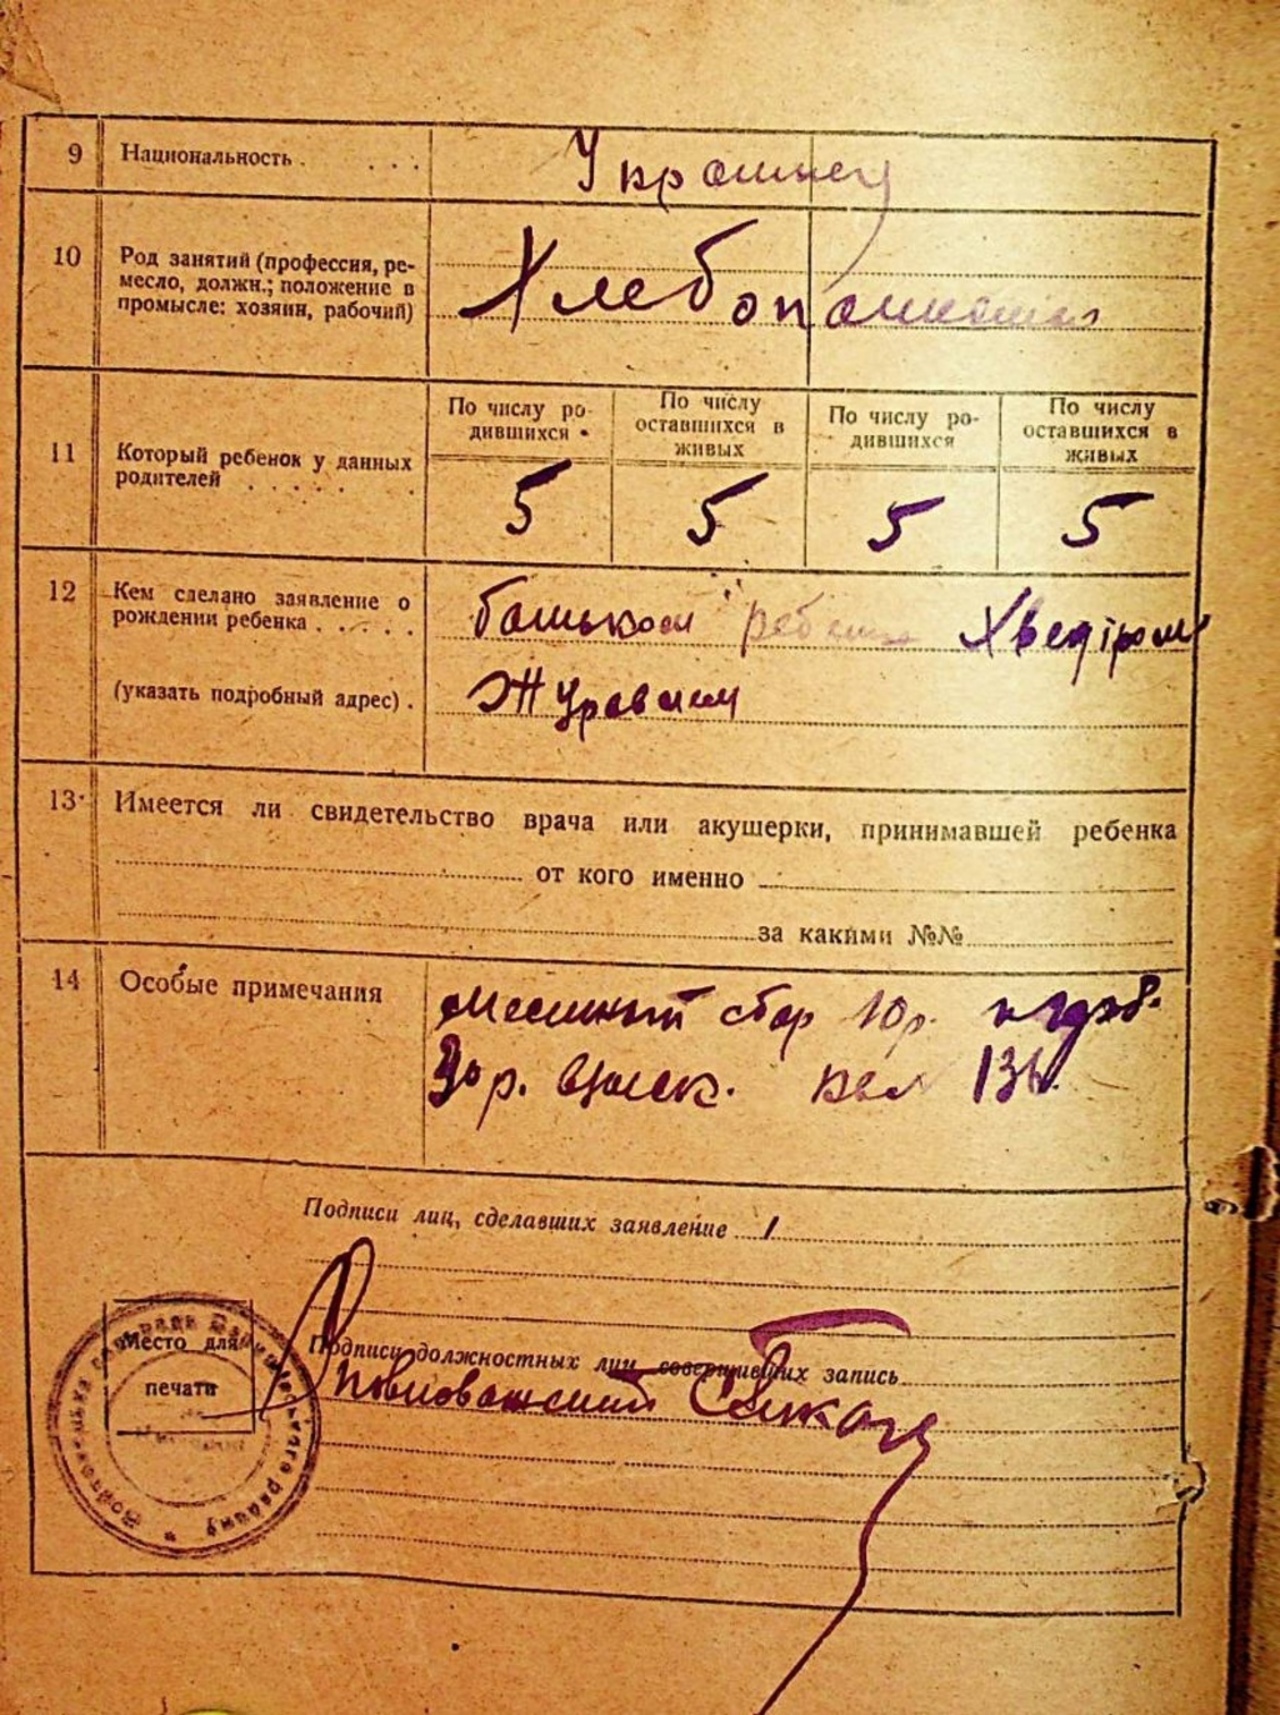 9 Национальность . . . . Украинец
10 Род занятий (профессия, ре-
месло, должн.; положение в
промысле: хозяин, рабочий)
Хлебопашество
11 Который ребенок у данных
родителей . . . . . .
По числу ро-
дившихся
По числу
оставшихся в
живых
По числу ро-
дившихся
По числу
оставшихся в
живых
5 5 5 5
12 Кем сделано заявление о
рождении ребенка . . . . .
батьком Хведіром
(указать подробный адрес) .
13 Имеется ли свидетельство врача или акушерки, принимавшей ребенка
от кого именно
за какими №№
14 Особые примечания
местный сбор 10 р.
р.
Подписи лиц, сделавших заявление
Место для
печати
Подписи должностных лиц совершивших запись